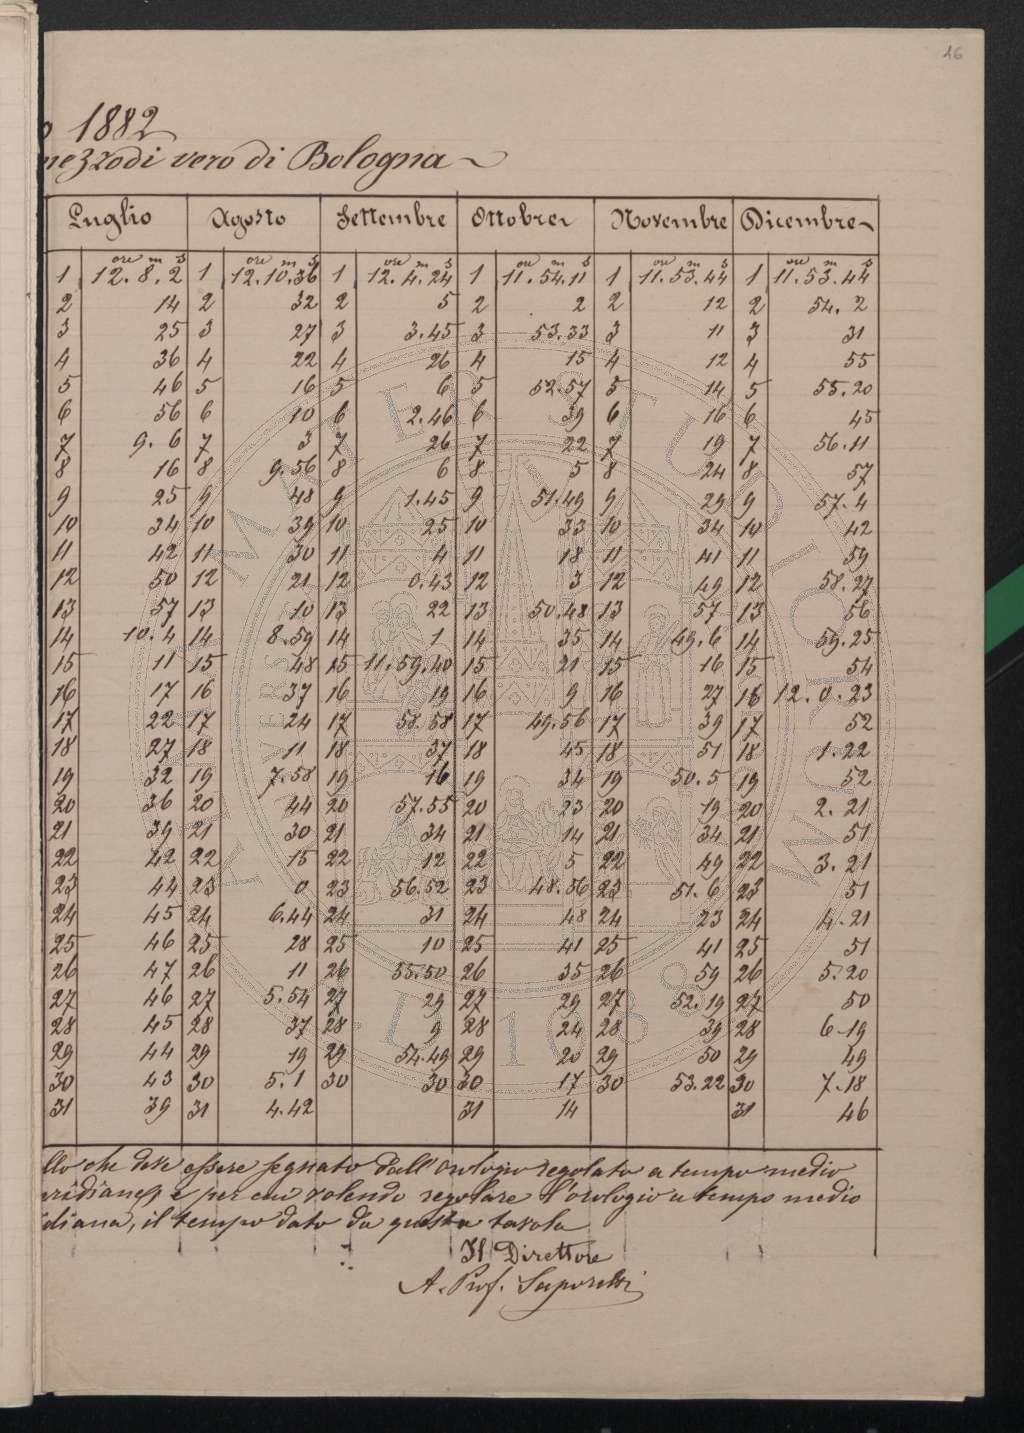 16
1882
mezzodi vero di Bologna
Luglio Agosto Settembre Ottobre Novembre Dicembre
ore m s ore m s ore m s ore m s ore m s ore m s
1 12.8.2 1 12.10.36 1 12.4.24 1 11.54.11 1 11.53.44 1 11.53.44
2 14 2 32 2 5 2 2 2 12 2 54.2
3 25 3 27 3 3.45 3 53.33 3 11 3 31
4 36 4 22 4 26 4 15 4 12 4 55
5 46 5 16 5 6 5 52.57 5 14 5 55.20
6 56 6 10 6 2.46 6 39 6 16 6 45
7 9.6 7 3 7 26 7 22 7 19 7 56.11
8 16 8 9.56 8 6 8 5 8 24 8 57
9 25 9 48 9 1.45 9 51.49 9 29 9 57.4
10 34 10 39 10 25 10 33 10 34 10 42
11 42 11 30 11 4 11 18 11 41 11 59
12 50 12 21 12 0.43 12 3 12 49 12 58.27
13 57 13 10 13 22 13 50.48 13 57 13 56
14 10.4 14 8.59 14 1 14 35 14 49.6 14 59.25
15 11 15 48 15 11.59.40 15 21 15 16 15 54
16 17 16 37 16 19 16 9 16 27 16 12.0.23
17 22 17 24 17 58.58 17 49.56 17 39 17 52
18 27 18 11 18 37 18 45 18 51 18 1.22
19 32 19 7.58 19 16 19 34 19 50.5 19 52
20 36 20 44 20 57.55 20 23 20 19 20 2.21
21 39 21 30 21 34 21 14 21 34 21 51
22 42 22 15 22 12 22 5 22 49 22 3.21
23 44 23 0 23 56.52 23 48.56 23 51.6 23 51
24 45 24 6.44 24 31 24 48 24 23 24 4.21
25 46 25 28 25 10 25 41 25 41 25 51
26 47 26 11 26 55.50 26 35 26 59 26 5.20
27 46 27 5.54 27 29 27 29 27 52.19 27 50
28 45 28 37 28 9 28 24 28 39 28 6.19
29 44 29 19 29 54.49 29 20 29 50 29 49
30 43 30 5.1 30 30 30 17 30 53.22 30 7.18
31 39 31 4.42 31 14 31 46
che deve essere segnato dall'orologio regolato a tempo medio
e per cui volendo regolare l'orologio a tempo medio
il tempo dato da questa tavola
Il Direttore
A. Prof. Saporetti
ALMA MATER STUDIORUM
A.D. 1088